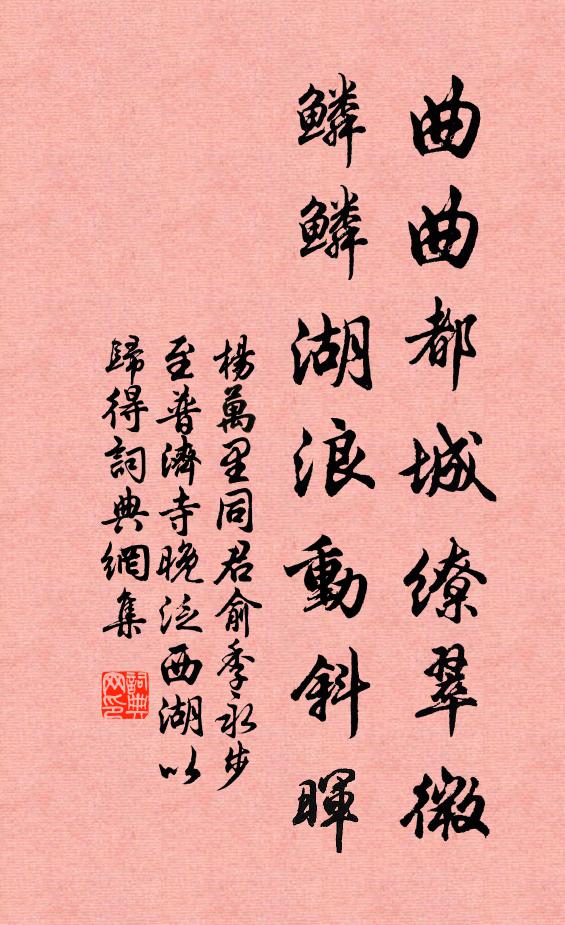 曲曲都城繚翠微
鱗鱗湖浪動斜暉
楊萬里同君俞季永步
至普濟寺晚泛西湖以
歸得詞典網集
詞典
网印